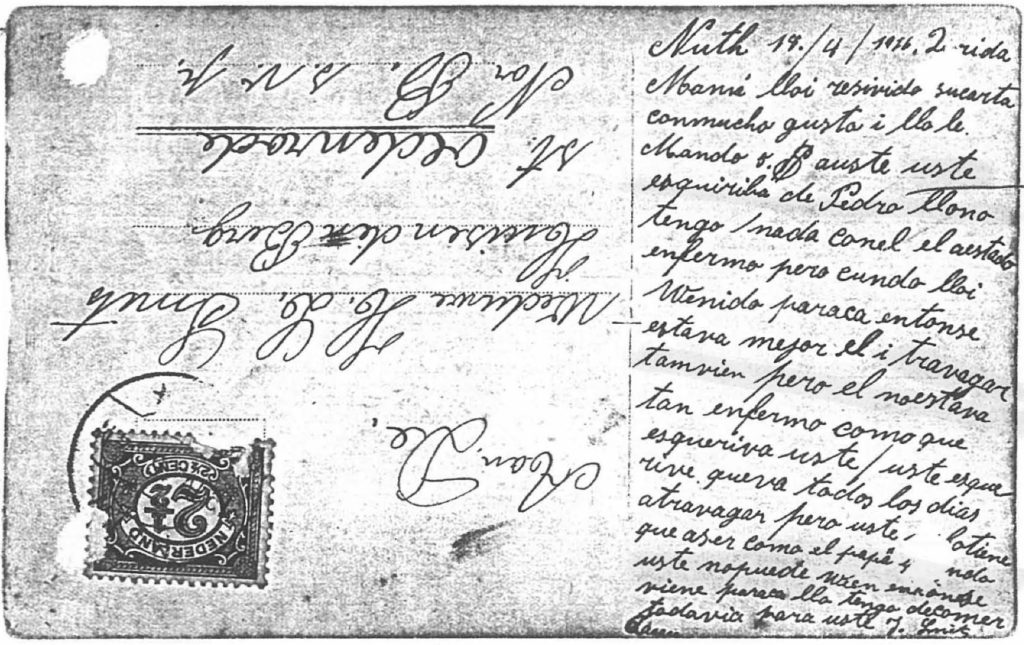 Nuth 17./4/1916. 2 rida
Mamá lloi resivido sucarta
conmucho gusto i llo le.
Mando auste uste
esquiriba de Pedro llono
tengo nada conel el aestado
enfermo pero cundo lloi
Wenido paraca entonse
estava mejor el i travagar
tamvien pero el noestava
tan enfermo como que
esqueriva uste uste esque
rive queva todos los dias
atravagar pero uste, lotiene
que aser como el papá y
uste nopuede
viene paraca llo tengo decomer
todavia para uste J. Smits
Aan De,
Weduwe H. L. Smits
Huisen den Berg
st. Oedenrode
Nor B. s.v.p.
NEDERLAND
2½
2½ CENT